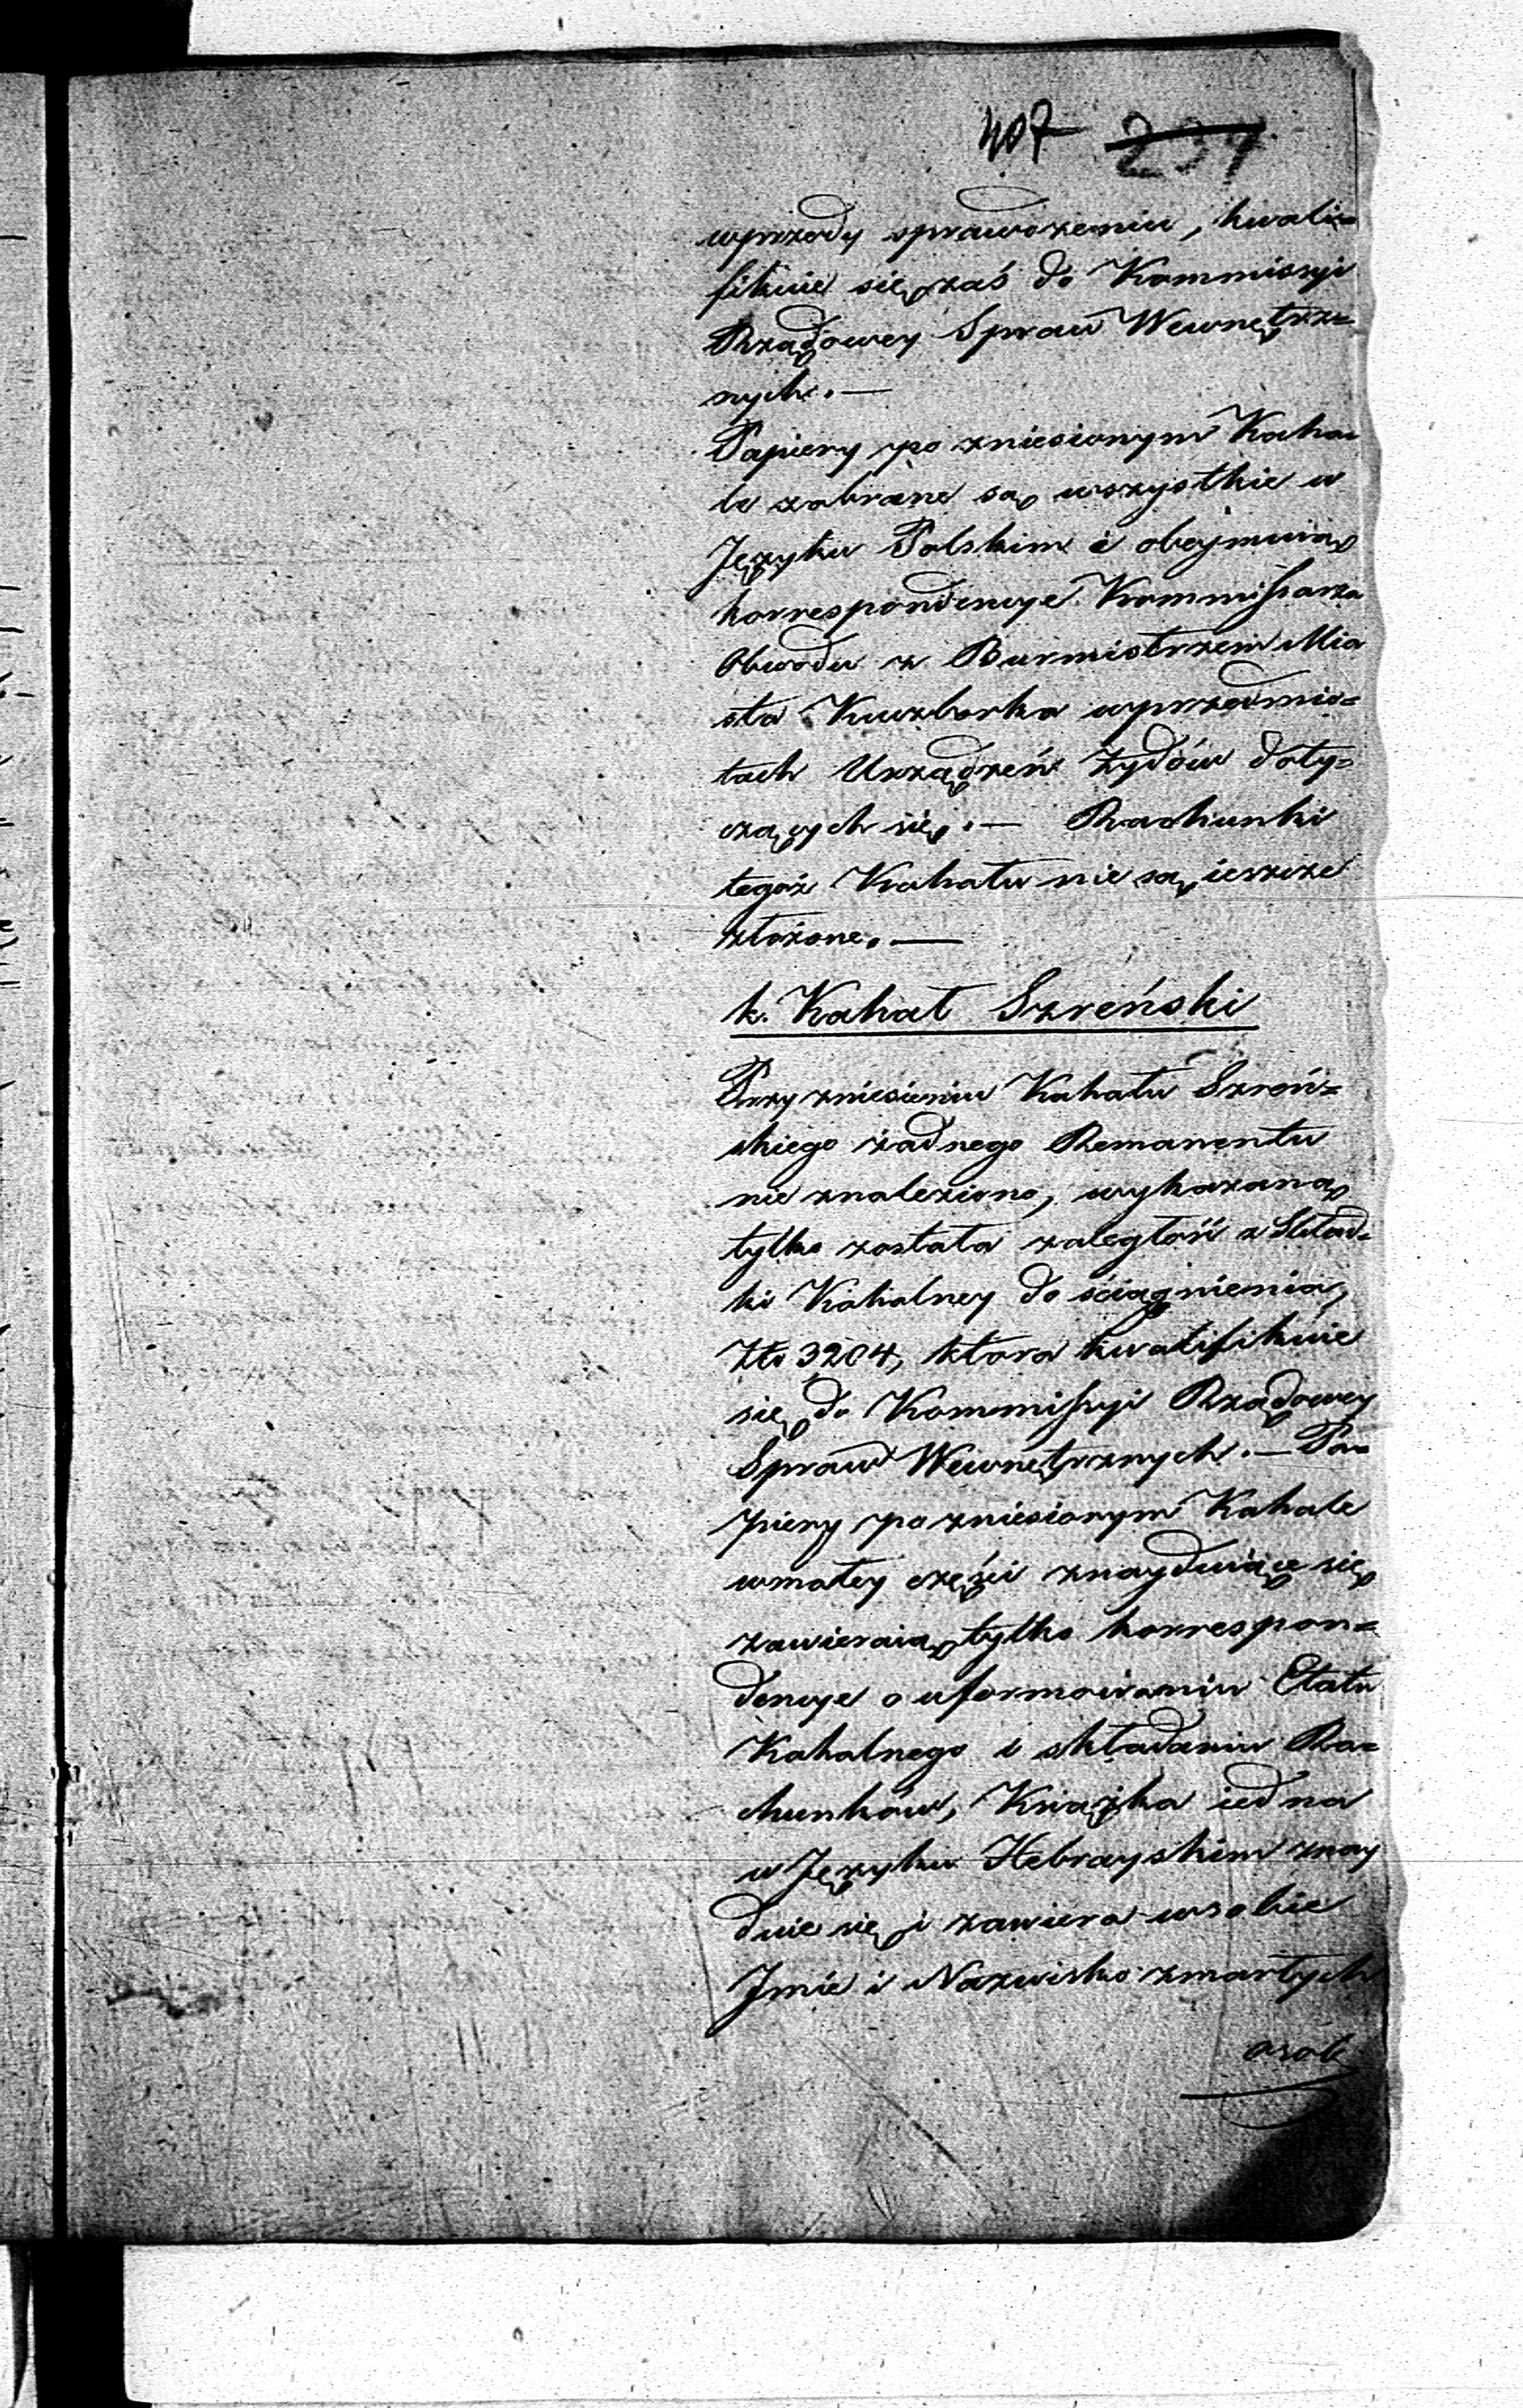 407 237
wprzody sprawdzeniu, kwali=
fikuie się zaś do Kommissyi
Rządowey Spraw Wewnętrz=
nych. —
Papiery po zniesionym Kaha=
le zabrane są wszystkie w
Języku Polskim i obeymuią
korrespondencye Kommissarza
Obwodu z Burmistrzem Mia
sta Kuczborka wprzedmio=
tach Urządzeń Żydów doty=
czących się. — Rachunki
tegoż Kahału nie są ieszcze
złożone. —
k. Kahał Szreński
Przy zniesieniu Kahału Szreń=
skiego żadnego Remanentu
nie znaleziono, wykazaną
tylko została zaległość z Skład=
ki Kahalney do ściągnienia,
Złp 3204, ktora kwalifikuie
się do Kommissyi Rządowey
Spraw Wewnętrznych. — Pa=
piery po zniesionym Kahale
wmałey części znayduiące się
zawieraią tylko korrespon=
dencye o uformowaniu Etatu
Kahalnego i składaniu Ra=
chunków, Książka iedna
w Języku Hebrayskim znay
duie się i zawiera wsobie
Jmie i Nazwisko zmarłych
osob